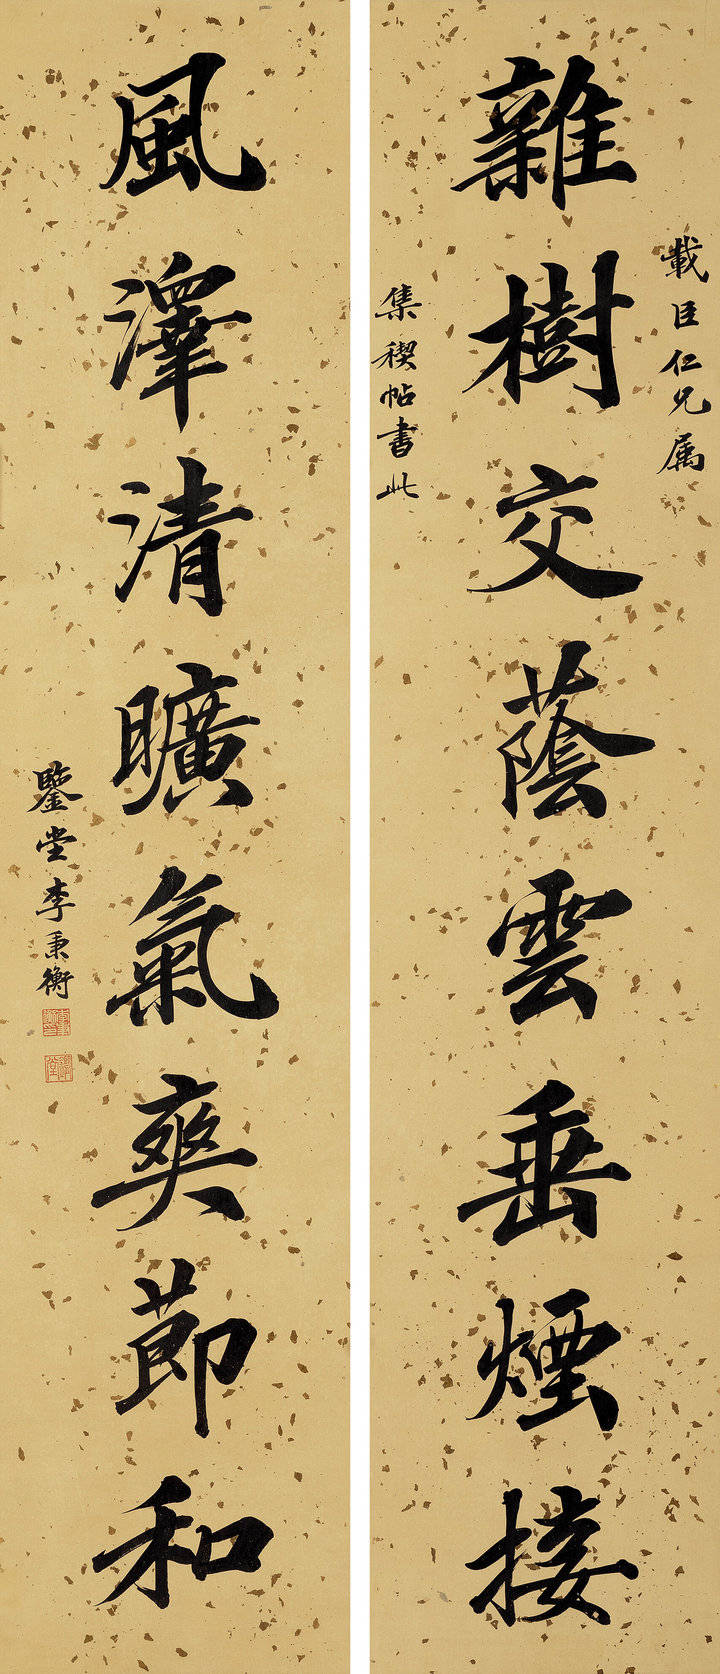 載臣仁兄属
雜樹交蔭雲垂煙接
集禊帖書此
風澤清曠氣爽節和
鑒堂李秉衡